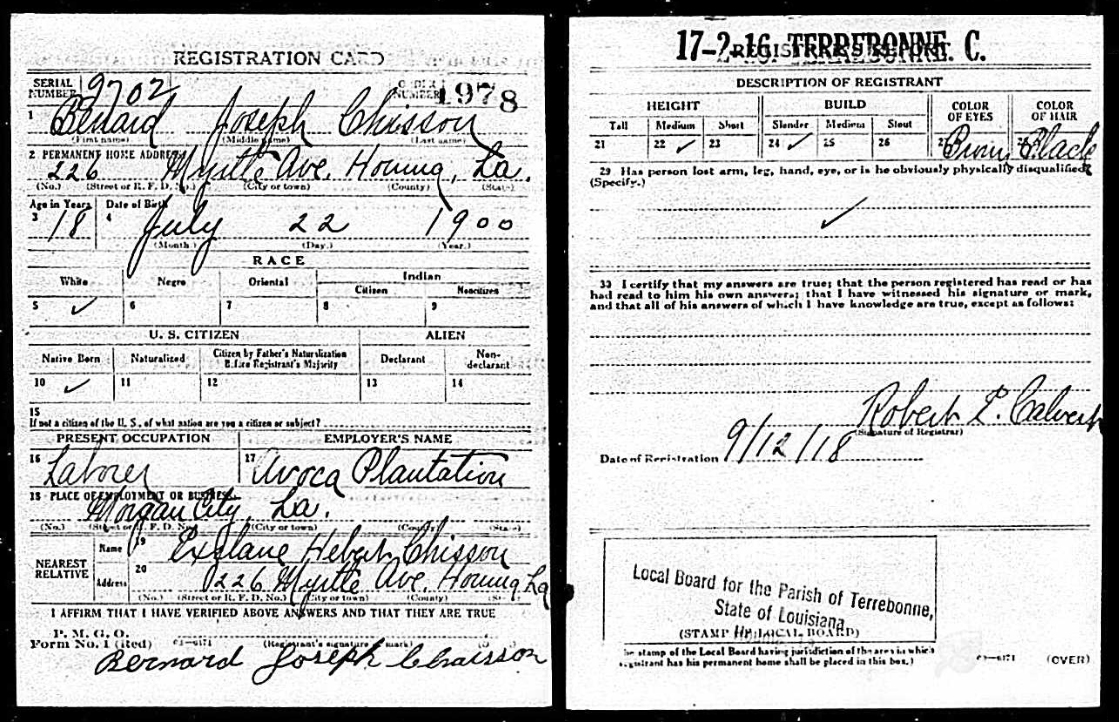 REGISTRATION CARD
SERIAL NUMBER 9702 ORDER NUMBER 1978
1 Benard Joseph Chisson
(First name) (Middle name) (Last name)
2 PERMANENT HOME ADDRESS
226 Myrtle Ave. Houma, La.
(No.) (Street or R. F. D. No.) (City or town) (County) (State)
Age in Years Date of Birth
3 18 4 July 22 1900
(Month.) (Day.) (Year.)
RACE
White Negro Oriental Indian
Citizen Noncitizen
5 ✓ 6 7 8 9
U. S. CITIZEN ALIEN
Native Born Naturalized Citizen by Father's Naturalization Before Registrant's Majority Declarant Non-declarant
10 ✓ 11 12 13 14
15
If not a citizen of the U. S., of what nation are you a citizen or subject?
PRESENT OCCUPATION EMPLOYER'S NAME
16 Laborer 17 Avoca Plantation
18 PLACE OF EMPLOYMENT OR BUSINESS
Morgan City La.
(No.) (Street or R. F. D. No.) (City or town) (County) (State)
NEAREST RELATIVE
Name 19 Hebert Chisson
Address 20 226 Myrtle Ave. Houma La
(No.) (Street or R. F. D. No.) (City or town) (County) (State)
I AFFIRM THAT I HAVE VERIFIED ABOVE ANSWERS AND THAT THEY ARE TRUE
P. M. G. O.
Form No. 1 (Red) 03—6171 (Registrant's signature or mark)
Bernard Joseph Chaisson
17-2-16 TERREBONNE. C.
REGISTRAR'S REPORT
DESCRIPTION OF REGISTRANT
HEIGHT BUILD COLOR OF EYES COLOR OF HAIR
Tall Medium Short Slender Medium Stout
21 22 ✓ 23 24 ✓ 25 26 27 Brown 28 Black
29 Has person lost arm, leg, hand, eye, or is he obviously physically disqualified?
(Specify.)
✓
30 I certify that my answers are true; that the person registered has read or has
had read to him his own answers; that I have witnessed his signature or mark,
and that all of his answers of which I have knowledge are true, except as follows:
Robert L. Calvert
(Signature of Registrar)
Date of Registration 9/12/18
Local Board for the Parish of Terrebonne,
State of Louisiana
(STAMP OF LOCAL BOARD)
The stamp of the Local Board having jurisdiction of the area in which
registrant has his permanent home shall be placed in this box.)
03—6171 (OVER)